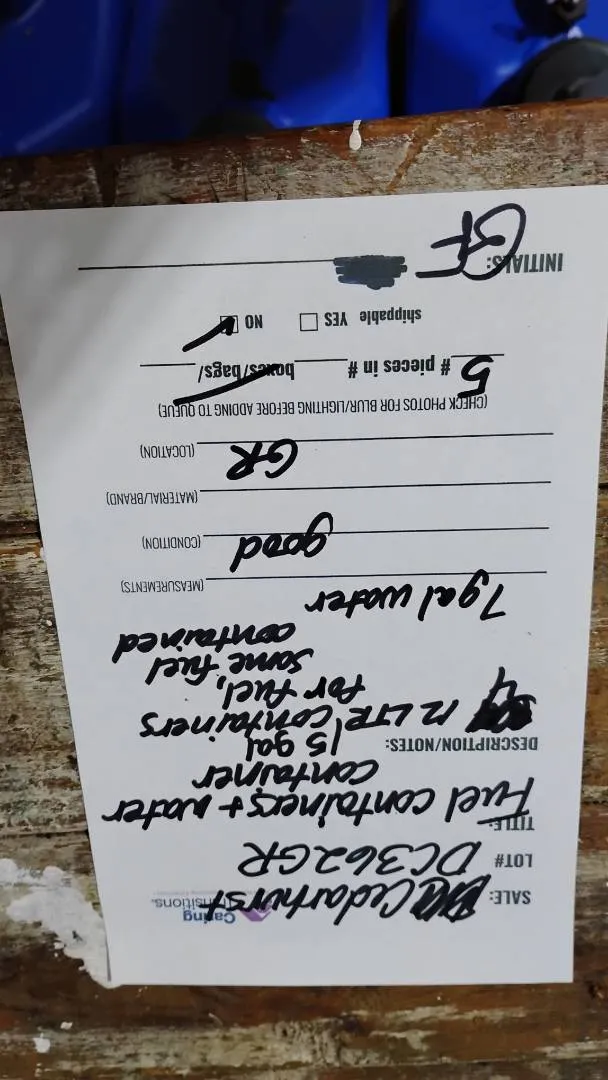 Caring
Transitions.
SALE: Cedarhurst
LOT# DC362GR
TITLE: Fuel containers + water
container
DESCRIPTION/NOTES: 15 gal
4 12 LTR containers
for fuel,
some fuel
contained
7 gal water
(MEASUREMENTS)
good (CONDITION)
(MATERIAL/BRAND)
GR (LOCATION)
(CHECK PHOTOS FOR BLUR/LIGHTING BEFORE ADDING TO QUEUE)
5 # pieces in # boxes/bags/
shippable YES NO
INITIALS: GF